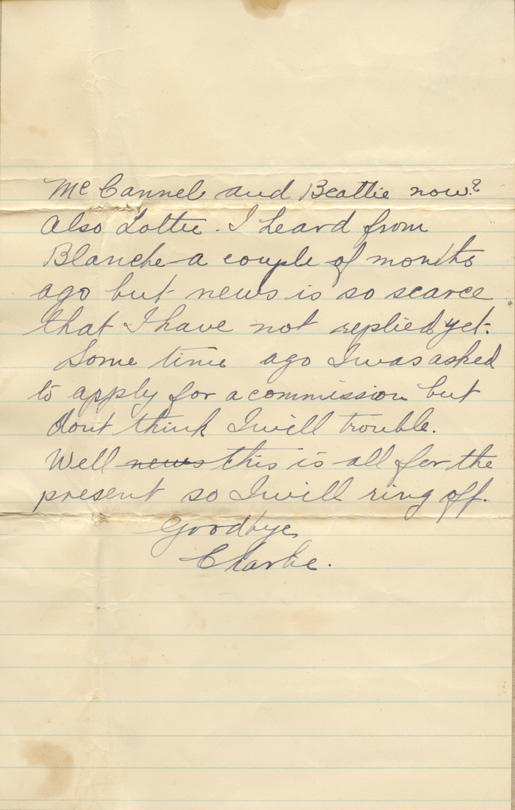 McCannel and Beattie now?
Also Lottie. I heard from
Blanche a couple of months
ago but news is so scarce
that I have not replied yet.
Some time ago I was asked
to apply for a commission but
dont think I will trouble.
Well news this is all for the
present so I will ring off.
Goodbye
Clarke.